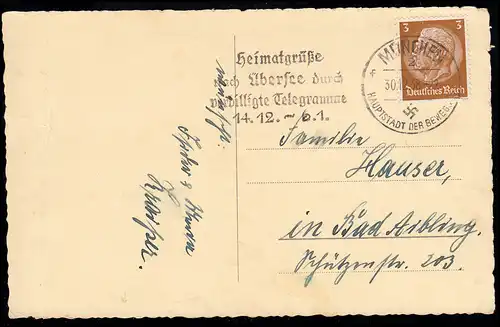 Heimatgrüße
nach Übersee durch
verbilligte Telegramme
14.12. – 6.1.
3 3
Deutsches Reich
MÜNCHEN
30.1
HAUPTSTADT DER BEWEG
Familie
Hauser,
in Bad Aibling.
Schützenstr. 203.